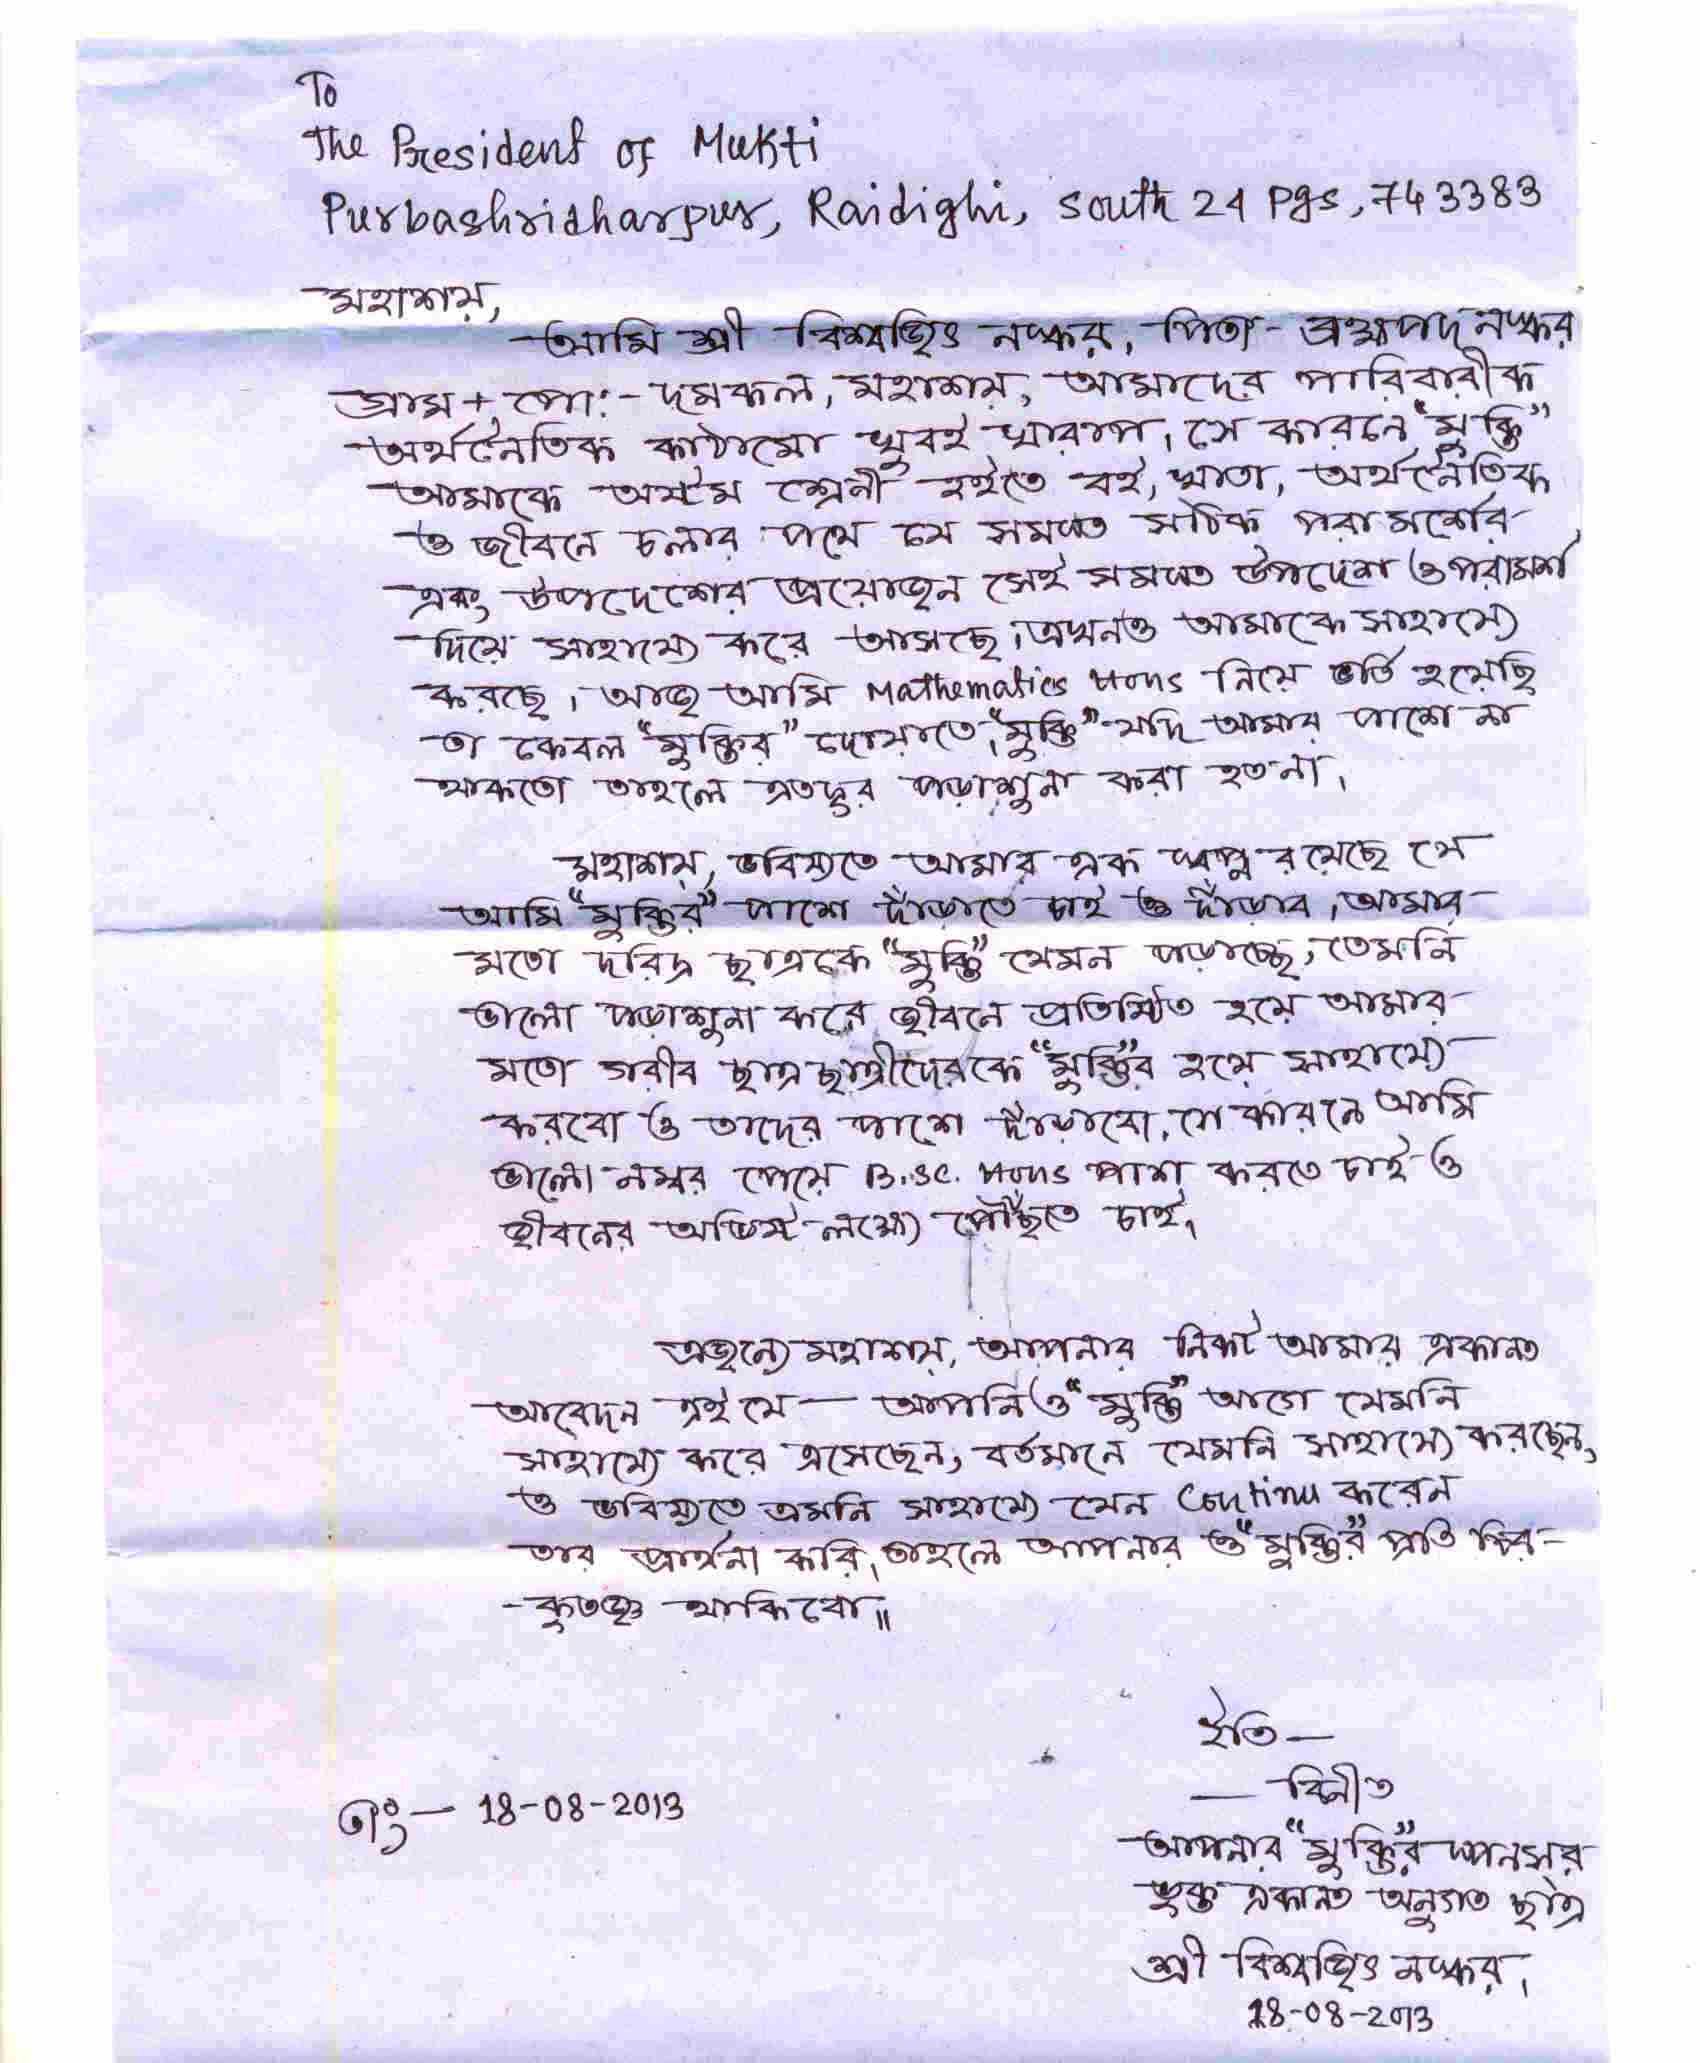 To
The President of Mukti
Purbashridharpur, Raidighi, South 24 Pgs, 743383
মহাশয়,
আমি শ্রী বিশ্বজিৎ নস্কর, পিতা - ব্রহ্মপদ নস্কর
গ্রাম + পো: - দমকল, মহাশয়, আমাদের পারিবারীক
অর্থনৈতিক কাঠামো খুবই খারাপ, সে কারনে "মুক্তি"
আমাকে অষ্টম শ্রেনী হইতে বই, খাতা, অর্থনৈতিক
ও জীবনে চলার পথে যে সমস্ত সঠিক পরামর্শের
এবং উপদেশের প্রয়োজন সেই সমস্ত উপদেশ ও পরামর্শ
দিয়ে সাহায্যে করে আসছে। এখনও আমাকে সাহায্যে
করছে। আজ আমি Mathematics Hons নিয়ে ভর্তি হয়েছি
তা কেবল "মুক্তির" দোয়াতে। "মুক্তি" যদি আমার পাশে না
থাকতো তাহলে এতদুর পড়াশুনা করা হতনা।
মহাশয়, ভবিষ্যতে আমার এক স্বপ্ন রয়েছে যে
আমি "মুক্তির" পাশে দাঁড়াতে চাই ও দাঁড়াব। আমার
মতো দরিদ্র ছাত্রকে "মুক্তি" যেমন পড়াচ্ছে, তেমনি
ভালো পড়াশুনা করে জীবনে প্রতিষ্ঠিত হয়ে আমার
মতো গরীব ছাত্রছাত্রীদেরকে "মুক্তি"র হয়ে সাহায্যে
করবো ও তাদের পাশে দাঁড়াবো, সে কারনে আমি
ভালো নম্বর পেয়ে B.Sc. Hons পাশ করতে চাই ও
জীবনের অভিষ্ট লক্ষ্যে পৌঁছতে চাই।
এজন্যে মহাশয়, আপনার নিকট আমার একান্ত
আবেদন এই যে — আপনি ও "মুক্তি" আগে যেমনি
সাহায্যে করে এসেছেন, বর্তমানে যেমনি সাহায্যে করছেন,
ও ভবিষ্যতে এমনি সাহায্যে যেন Continu করেন
তার প্রার্থনা করি, তাহলে আপনার ও "মুক্তির" প্রতি চির-
-কৃতজ্ঞ থাকিবো॥
ইতি —
— বিনীত
তাং — 18-08-2013
আপনার "মুক্তি"র স্পনসর
ভুক্ত একান্ত অনুগত ছাত্র
শ্রী বিশ্বজিৎ নস্কর।
18-08-2013